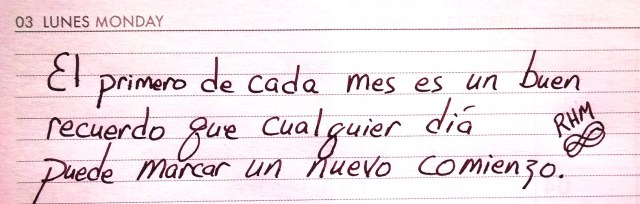 03 LUNES MONDAY
El primero de cada mes es un buen
recuerdo que cualquier día
puede marcar un nuevo comienzo.
RHM